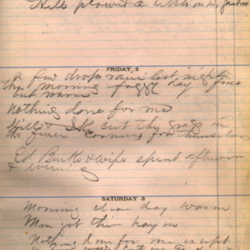 Will plowed a little on my garden
FRIDAY, 2
A few drops rain last night
this morning foggy day fine
but warm
nothing done for me
Will & Ike cut the grass in
the corners for
Ed Burk & wife spent afternoon
& evening
SATURDAY 3
Morning clear day warm
Men got their hay in
nothing done for me except